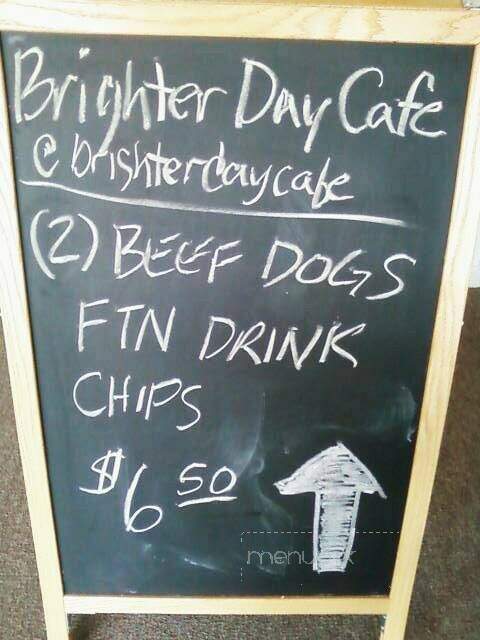 Brighter Day Cafe
@brighterdaycafe
(2) BEEF DOGS
FTN DRINK
CHIPS
$6 50